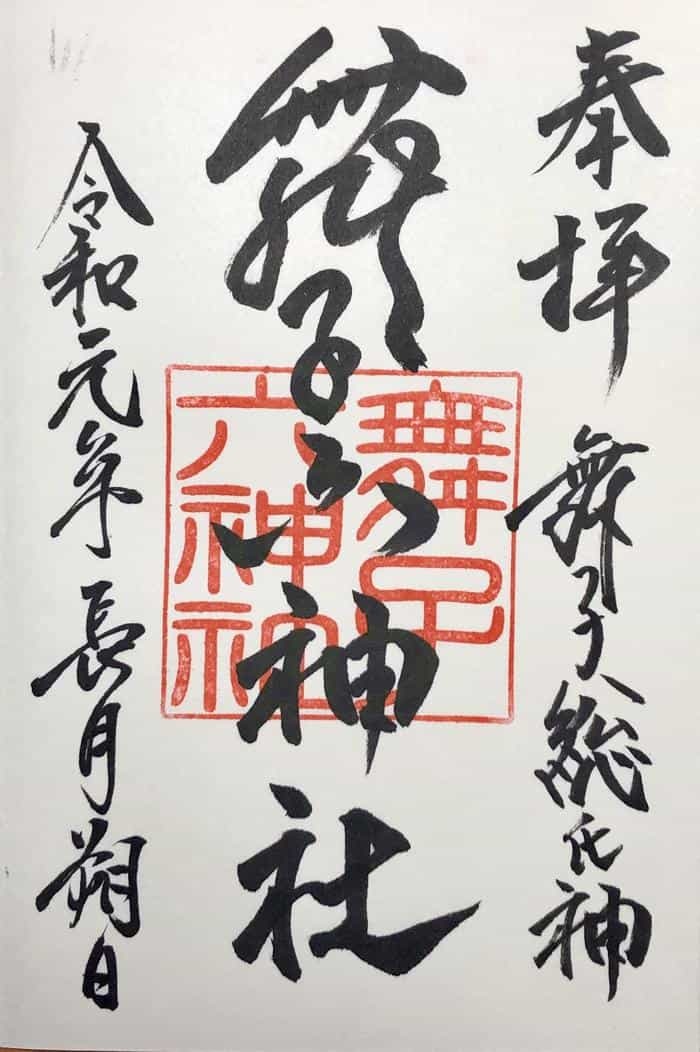 奉拝
舞子総氏神
舞子六神社
舞子
六神社
令和元年長月朔日